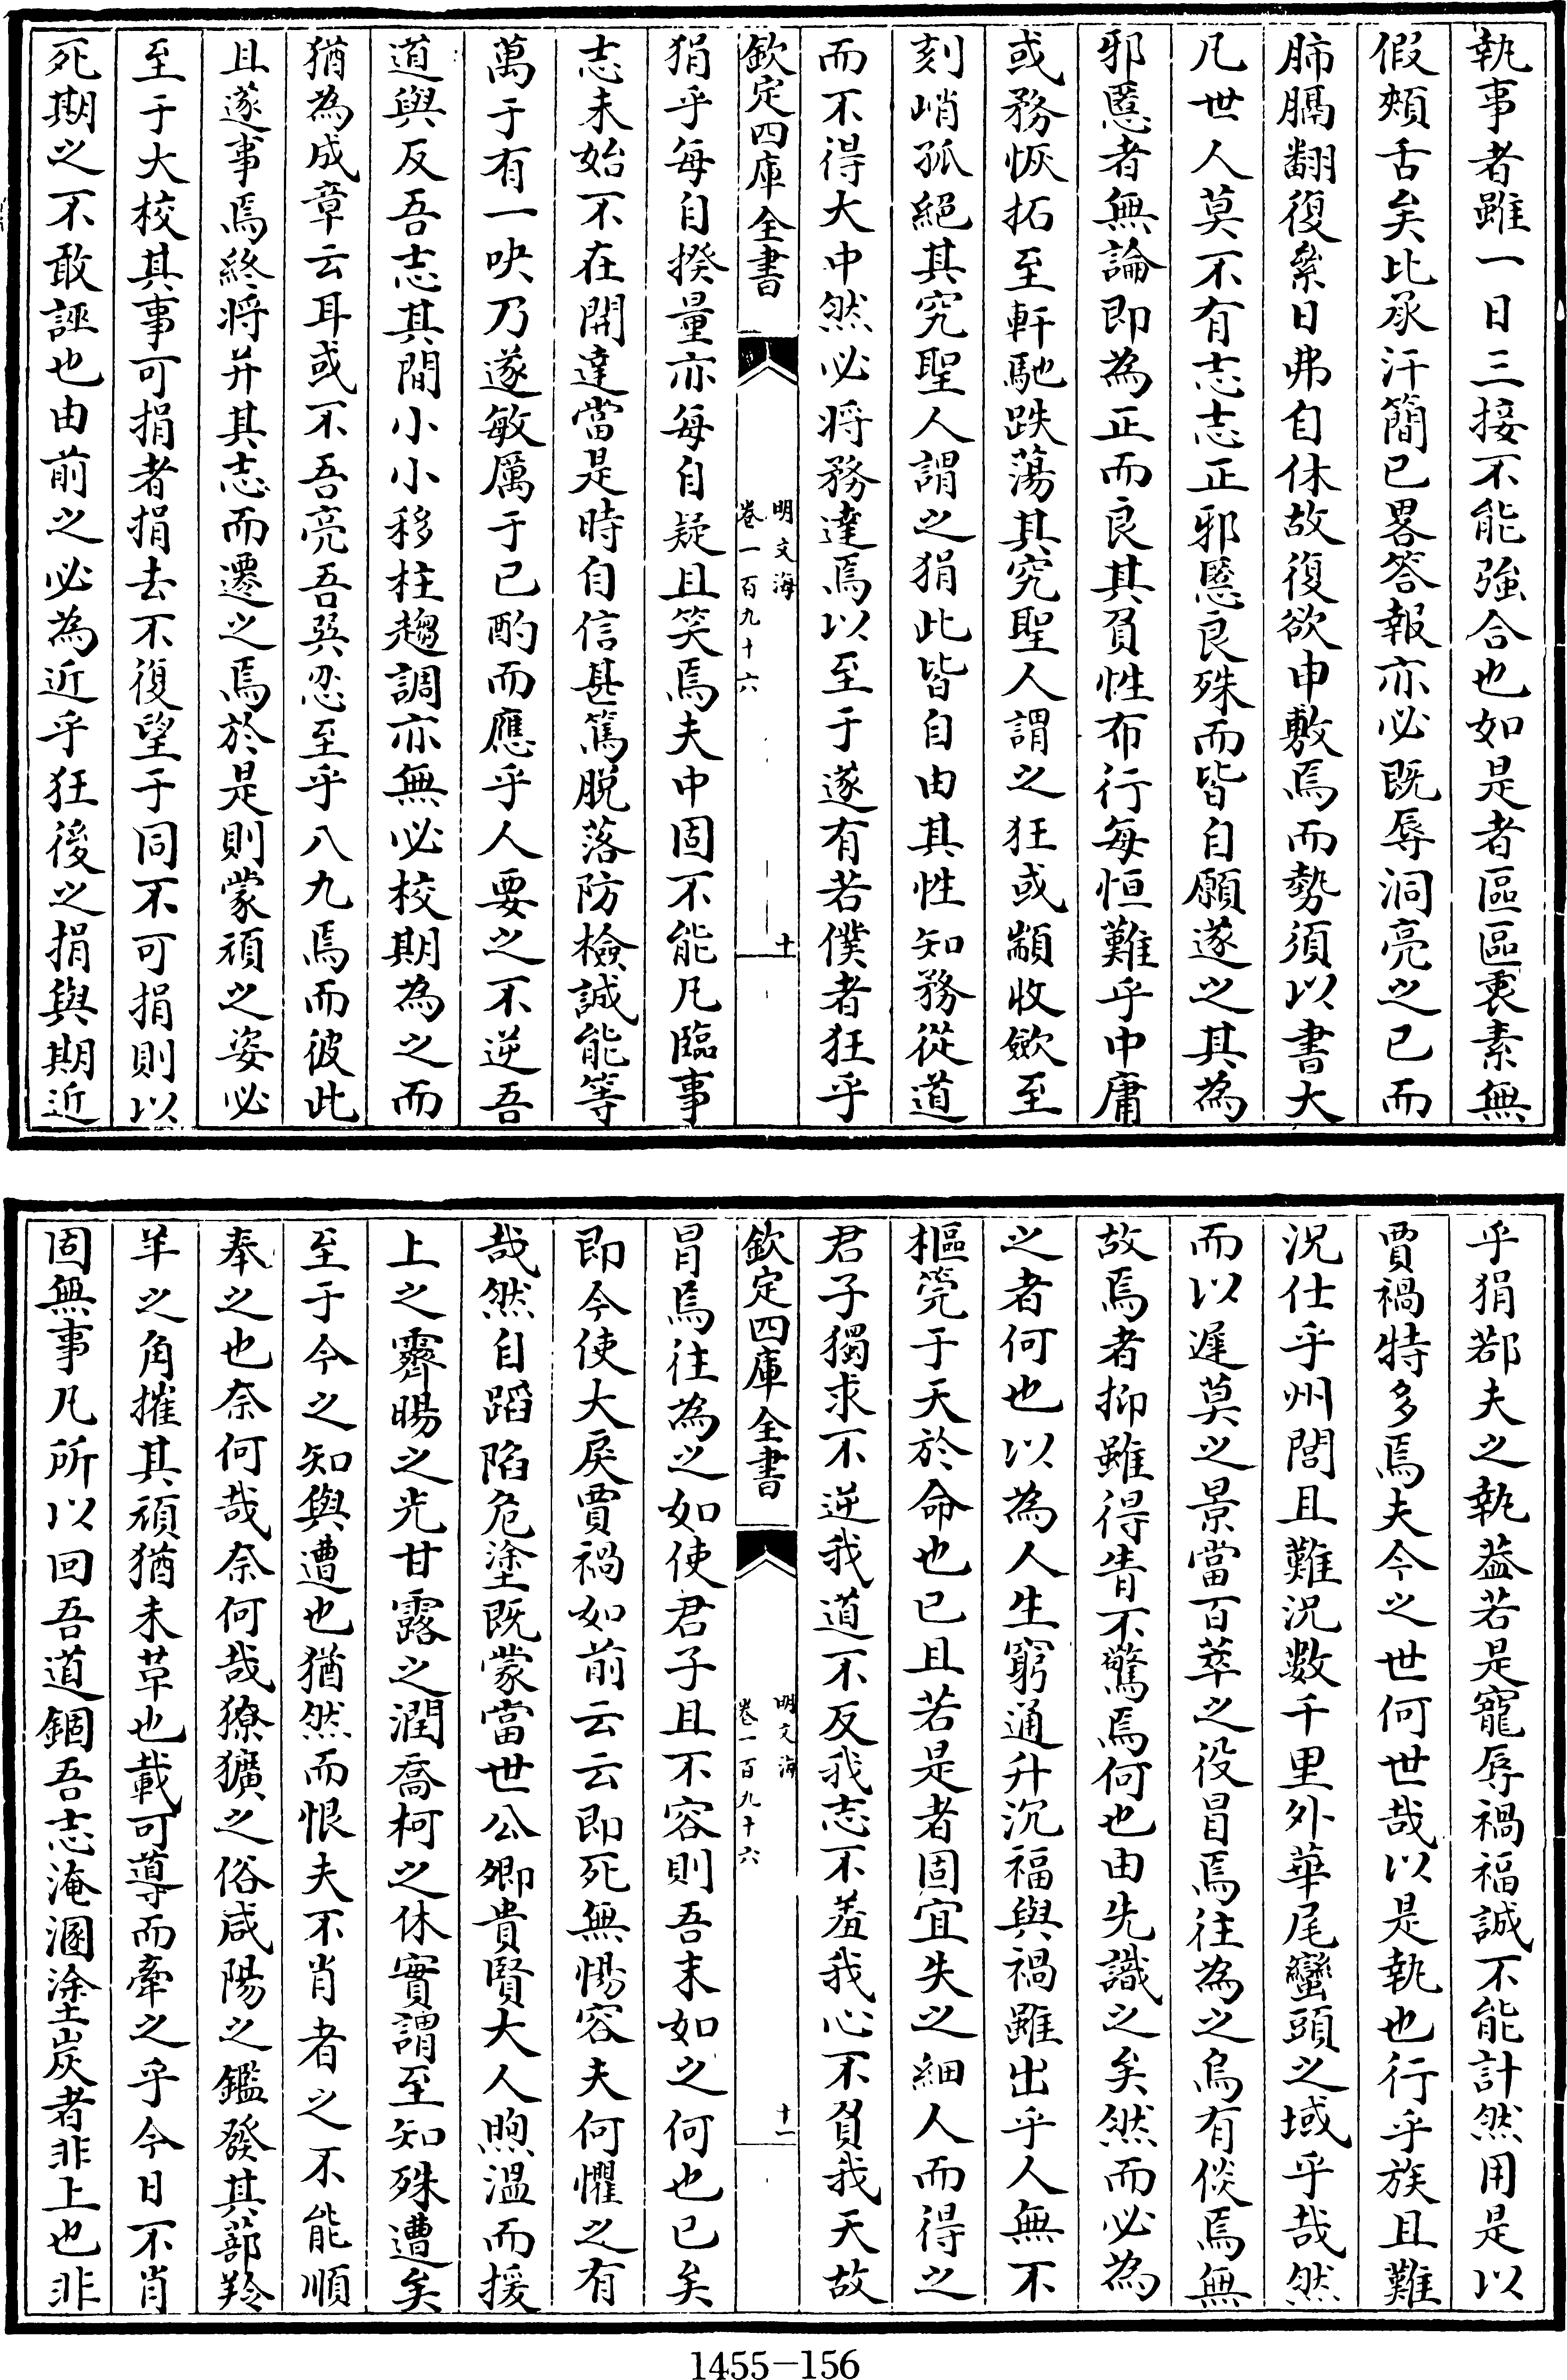 執事者雖一日三接不能強合也如是者區區裏素無
假頰舌矣比承汗簡已畧答報亦必既辱洞亮之已而
肺膈翻復絫日弗自休故復欲申敷焉而勢須以書大
凡世人莫不有志志正邪慝良殊而皆自願遂之其為
邪慝者無論即為正而良其負性布行每恒難乎中庸
或務恢拓至軒馳跌蕩其究聖人謂之狂或顓收斂至
刻峭孤絕其究聖人謂之狷此皆自由其性知務從道
而不得大中然必將務達焉以至于遂有若僕者狂乎
欽定四庫全書
明文海
卷一百九十六
十
狷乎每自揆量亦每自疑且笑焉夫中固不能凡臨事
志未始不在開達當是時自信甚篤脫落防檢誠能等
萬于有一吷乃遂敏厲于已酌而應乎人要之不逆吾
道與反吾志其間小小移柱趨調亦無必校期為之而
猶為成章云耳或不吾亮吾巽忍至乎八九焉而彼此
且遂事焉終將并其志而遷之焉於是則蒙頑之姿必
至于大校其事可捐者捐去不復望于同不可捐則以
死期之不敢誣也由前之必為近乎狂後之捐與期近
乎狷鄙夫之執葢若是寵辱禍福誠不能計然用是以
賈禍特多焉夫今之世何世哉以是執也行乎族且難
況仕乎州閭且難況數千里外華尾蠻頭之域乎哉然
而以遲莫之景當百萃之役冒焉往為之烏有倓焉無
故焉者抑雖得眚不驚焉何也由先識之矣然而必為
之者何也以為人生窮通升沉福與禍雖出乎人無不
樞筦于天於命也已且若是者固宜失之細人而得之
君子獨求不逆我道不反我志不羞我心不負我天故
欽定四庫全書
明文海
卷一百九十六
十一
冐焉往為之如使君子且不容則吾末如之何也已矣
即今使大戾賈禍如前云云即死無惕容夫何懼之有
哉然自蹈陷危塗既蒙當世公卿貴賢大人煦溫而援
上之霽暘之光甘露之潤喬柯之休實謂至知殊遭矣
至于今之知與遭也猶然而恨夫不肖者之不能順
奉之也奈何哉奈何哉獠獷之俗咸陽之鑑發其蔀羚
羊之角摧其頑猶未草也載可導而牽之乎今日不肖
固無事凡所以回吾道錮吾志淹溷塗炭者非上也非
1455-156